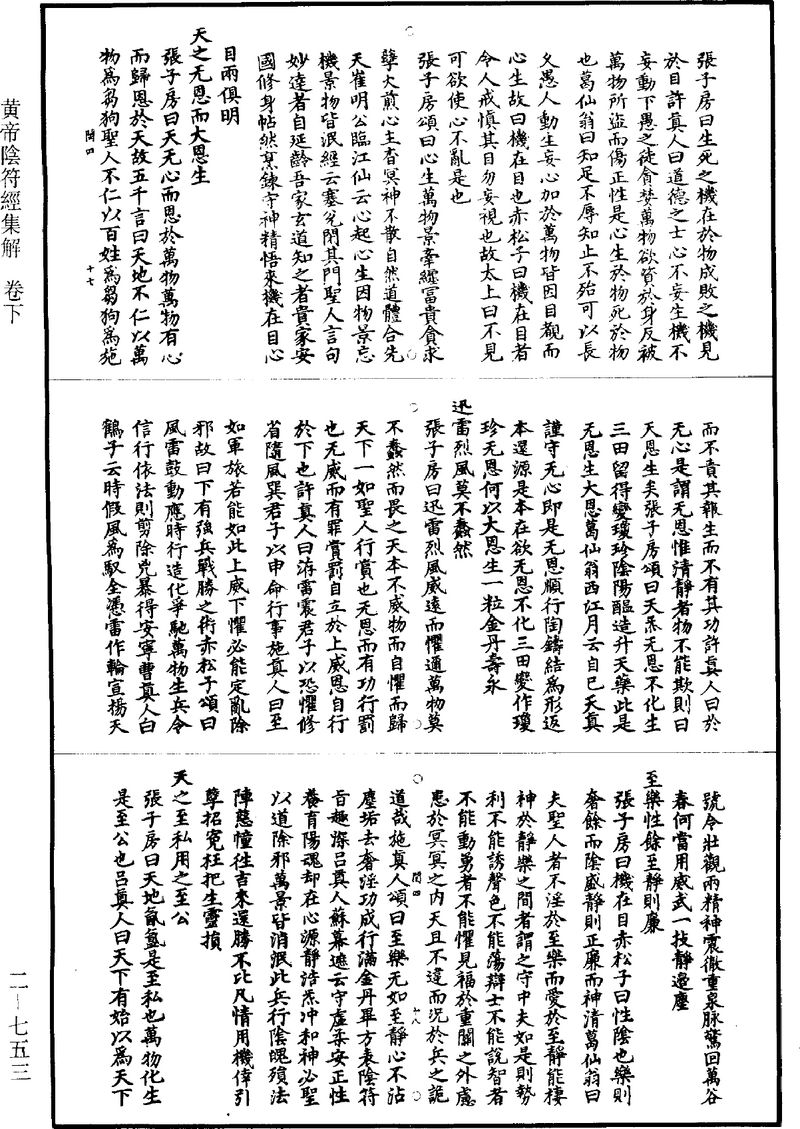 黄帝陰符經集解 卷下
二—七五三
張子房曰生死之機在於物成敗之機見
於目許真人曰道德之士心不妄生機不
妄動下愚之徒貪婪萬物欲資於身反被
萬物所盜而傷正性是心生於物死於物
也葛仙翁曰知足不辱知止不殆可以長
久愚人動生妄心加於萬物皆因目覩而
心生故曰機在目也赤松子曰機在目者
令人戒慎其目勿妄視也故太上曰不見
可欲使心不亂是也
張子房頌曰心生萬物景牽纏冨貴貪求
孽火煎心主昏冥神不散自然道體合先
天崔明公臨江仙云心起心生因物景忘
機景物皆泯經云塞兌閉其門聖人言句
妙達者自延齡吾家玄道知之者貴家安
國修身帖然烹鍊守神精悟來機在目心
目兩俱明
天之无恩而大恩生
張子房曰天无心而恩於萬物萬物有心
而歸恩於天故五千言曰天地不仁以萬
物為芻狗聖人不仁以百姓為芻狗為施
閏四
十七
而不責其報生而不有其功許真人曰於
无心是謂无恩惟清靜者物不能欺則曰
大恩生矣張子房頌曰天炁无恩不化生
三田留得變瓊珍陰陽醞造升天藥此是
无恩生大恩葛仙翁西江月云自已天真
謹守无心即是无恩順行陶鑄結為形返
本還源是本在欲无恩不化三田變作瓊
珍无恩何以大恩生一粒金丹壽永
迅雷烈風莫不蠢然
張子房曰迅雷烈風威遠而懼邇萬物莫
不蠢然而畏之天本不威物而自懼而歸
天下一如聖人行賞也无恩而有功行罰
也无威而有罪賞罰自立於上威恩自行
於下也許真人曰洊雷震君子以恐懼修
省隨風巽君子以申命行事施真人曰至
如軍旅若能如此上威下懼必能定亂除
邪故曰下有強兵戰勝之術赤松子頌曰
風雷鼓動應時行造化爭馳萬物生兵令
信行依法則剪除兇暴得安寧曹真人白
鶴子云時假風為馭全憑雷作輪宣揚天
號令壯觀雨精神震徹重泉脉驚回萬谷
春何當用威武一技靜邊塵
至樂性餘至靜則廉
張子房曰機在目赤松子曰性陰也樂則
奢餘而陰盛靜則正廉而神清葛仙翁曰
夫聖人者不淫於至樂而愛於至靜能棲
神於靜樂之間者謂之守中夫如是則勢
利不能誘聲色不能蕩辯士不能說智者
不能動勇者不能懼見福於重關之外慮
患於冥冥之内天且不違而況於兵之詭
道哉施真人頌曰至樂无如至靜心不沾
塵垢去奢淫功成行滿金丹畢方表陰符
旨趣深吕真人蘇幕遮云守虚柔安正性
養育陽魂却在心源靜浩炁冲和神必聖
以道除邪萬景皆消泯此兵行陰魄殞法
陣慈憧往吉來還勝不比凡情用機倖引
孽招寃枉把生靈損
天之至私用之至公
張子房曰天地氤氳是至私也萬物化生
是至公也吕真人曰天下有始以為天下
閏四
十八